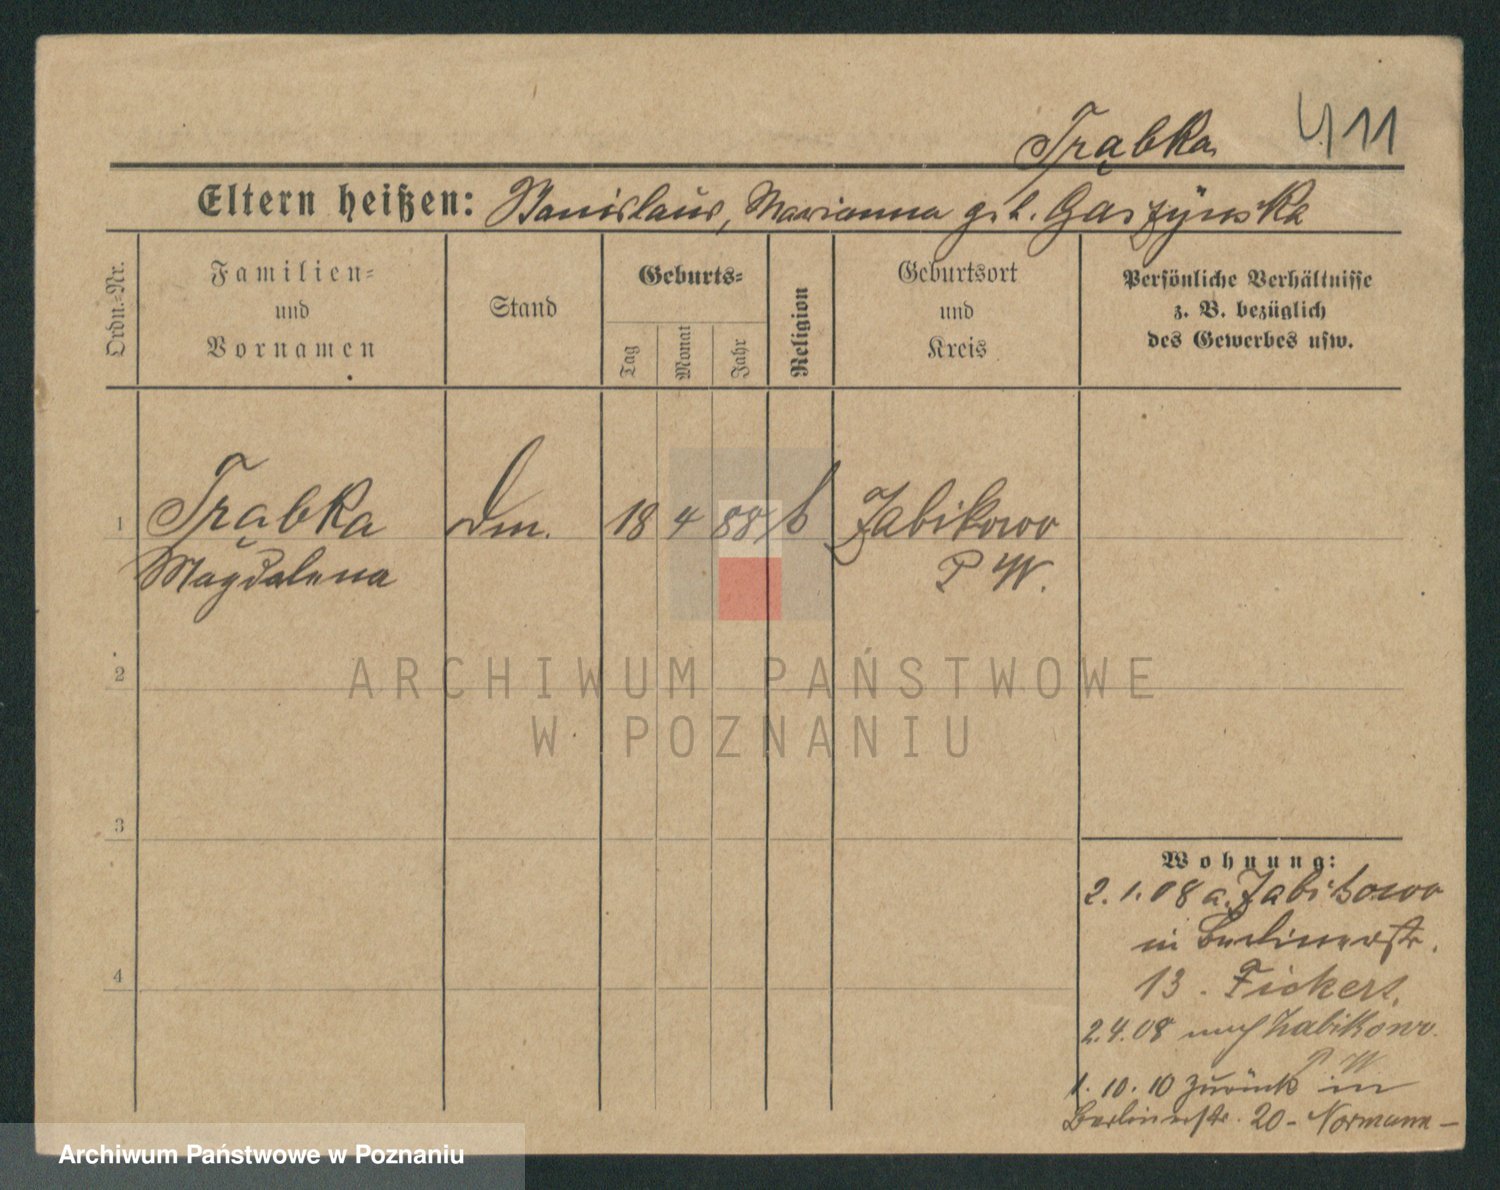 Trąbka 411
Eltern heißen: Stanislaus, Marianna geb. Gaszÿnska
Ordn.-Nr.
Familien-
und
Vornamen
Stand
Geburts-
Tag
Monat
Jahr
Religion
Geburtsort
und
Kreis
Persönliche Verhältnisse
z. B. bezüglich
des Gewerbes usw.
1 Trąbka Dm. 18 4 88 k Zabikowo
Magdalena P W.
2
3
4
Wohnung:
2.1.08 a. Zabikowo
in Berlinerstr.
13. Fickert.
2.4.08 nach Zabikowo.
P W
1.10.10 zurück in
Berlinerstr. 20 - Normann -
ARCHIWUM PAŃSTWOWE
W POZNANIU
Archiwum Państwowe w Poznaniu